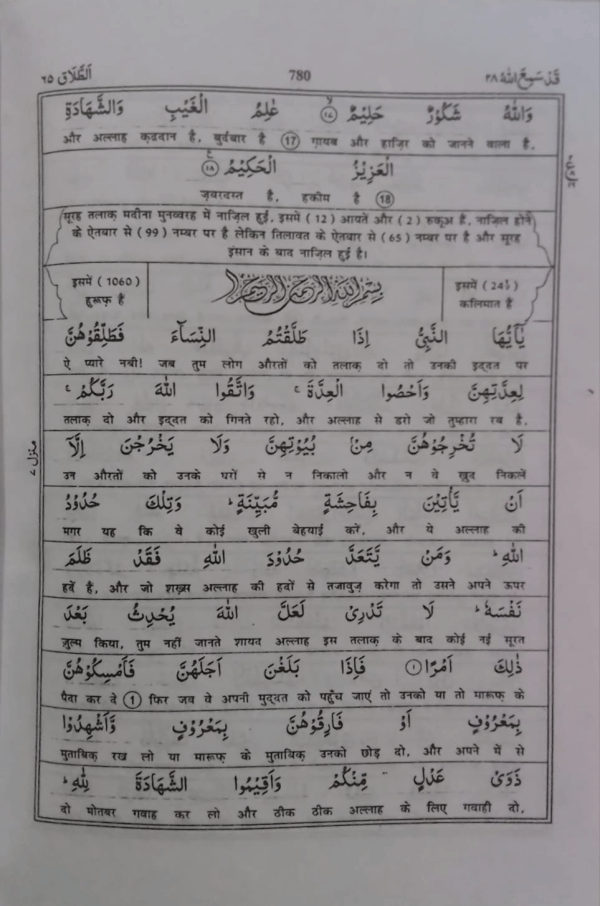 اَلطَّلَاق ٦٥ 780 قَدْ سَمِعَ اللّٰهُ ٢٨
وَاللّٰهُ شَكُوْرٌ حَلِيْمٌ ۙ﴿١٧﴾ عٰلِمُ الْغَيْبِ وَالشَّهَادَةِ
और अल्लाह क़द्रदान है, बुर्दबार है (17) ग़ायब और हाज़िर को जानने वाला है,
الْعَزِيْزُ الْحَكِيْمُ ﴿١٨﴾
ज़बरदस्त है, हकीम है (18)
सूरह तलाक़ मदीना मुनव्वरह में नाज़िल हुई, इसमें (12) आयतें और (2) रुकूअ हैं, नाज़िल होने
के ऐतबार से (99) नम्बर पर है लेकिन तिलावत के ऐतबार से (65) नम्बर पर है और सूरह
इंसान के बाद नाज़िल हुई है।
इसमें (1060)
हुरूफ़ हैं
بِسْمِ اللّٰهِ الرَّحْمٰنِ الرَّحِيْمِ
इसमें
कलिमात हैं
يٰٓاَيُّهَا النَّبِىُّ اِذَا طَلَّقْتُمُ النِّسَآءَ فَطَلِّقُوْهُنَّ
ऐ प्यारे नबी! जब तुम लोग औरतों को तलाक़ दो तो उनकी इद्दत पर
لِعِدَّتِهِنَّ وَاَحْصُوا الْعِدَّةَ ۚ وَاتَّقُوا اللّٰهَ رَبَّكُمْ ۚ
तलाक़ दो और इद्दत को गिनते रहो, और अल्लाह से डरो जो तुम्हारा रब है,
لَا تُخْرِجُوْهُنَّ مِنْۢ بُيُوْتِهِنَّ وَلَا يَخْرُجْنَ اِلَّآ
उन औरतों को उनके घरों से न निकालो और न वे ख़ुद निकलें
اَنْ يَّاْتِيْنَ بِفَاحِشَةٍ مُّبَيِّنَةٍ ؕ وَتِلْكَ حُدُوْدُ
मगर यह कि वे कोई खुली बेहयाई करें, और ये अल्लाह की
اللّٰهِ ؕ وَمَنْ يَّتَعَدَّ حُدُوْدَ اللّٰهِ فَقَدْ ظَلَمَ
हदें हैं, और जो शख़्स अल्लाह की हदों से तजावुज़ करेगा तो उसने अपने ऊपर
نَفْسَهٗ ؕ لَا تَدْرِىْ لَعَلَّ اللّٰهَ يُحْدِثُ بَعْدَ
ज़ुल्म किया, तुम नहीं जानते शायद अल्लाह इस तलाक़ के बाद कोई नई सूरत
ذٰلِكَ اَمْرًا ﴿١﴾ فَاِذَا بَلَغْنَ اَجَلَهُنَّ فَاَمْسِكُوْهُنَّ
पैदा कर दे (1) फिर जब वे अपनी मुद्दत को पहुँच जाएं तो उनको या तो मारूफ़ के
بِمَعْرُوْفٍ اَوْ فَارِقُوْهُنَّ بِمَعْرُوْفٍ وَّاَشْهِدُوْا
मुताबिक़ रख लो या मारूफ़ के मुताबिक़ उनको छोड़ दो, और अपने में से
ذَوَىْ عَدْلٍ مِّنْكُمْ وَاَقِيْمُوا الشَّهَادَةَ لِلّٰهِ ؕ
दो मोतबर गवाह कर लो और ठीक ठीक अल्लाह के लिए गवाही दो,
منزل ٧